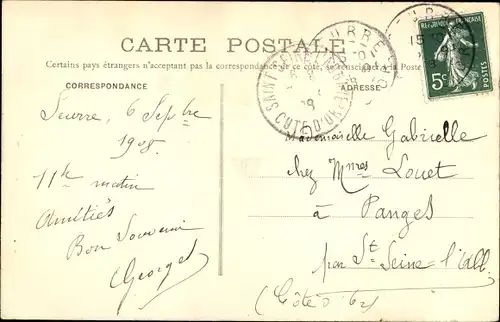 CARTE POSTALE
Certains pays étrangers n'acceptant pas la correspondance de ce côté, se renseigner à la Poste
CORRESPONDANCE
ADRESSE
Seurre, 6 Septbre
1908
11h matin
Amitiés
Bon Souvenir
Georges
Mademoiselle Gabrielle
chez Mmes Louet
à Panges
par St Seine-l'Abb.
(Côte d'Or)
5c